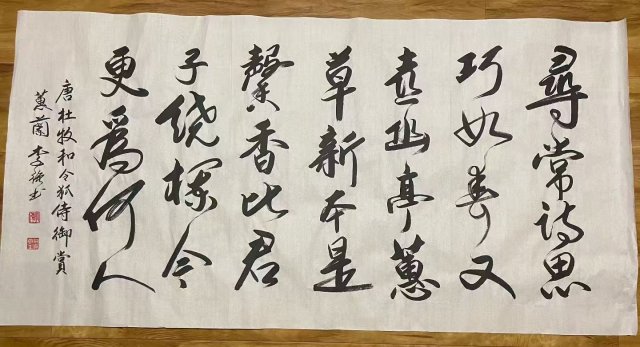 尋常诗思
巧如春又
喜幽亭蕙
草新本是
馨香比君
子绕欄今
更為何人
唐杜牧和令狐侍御賞
蕙蘭 李书